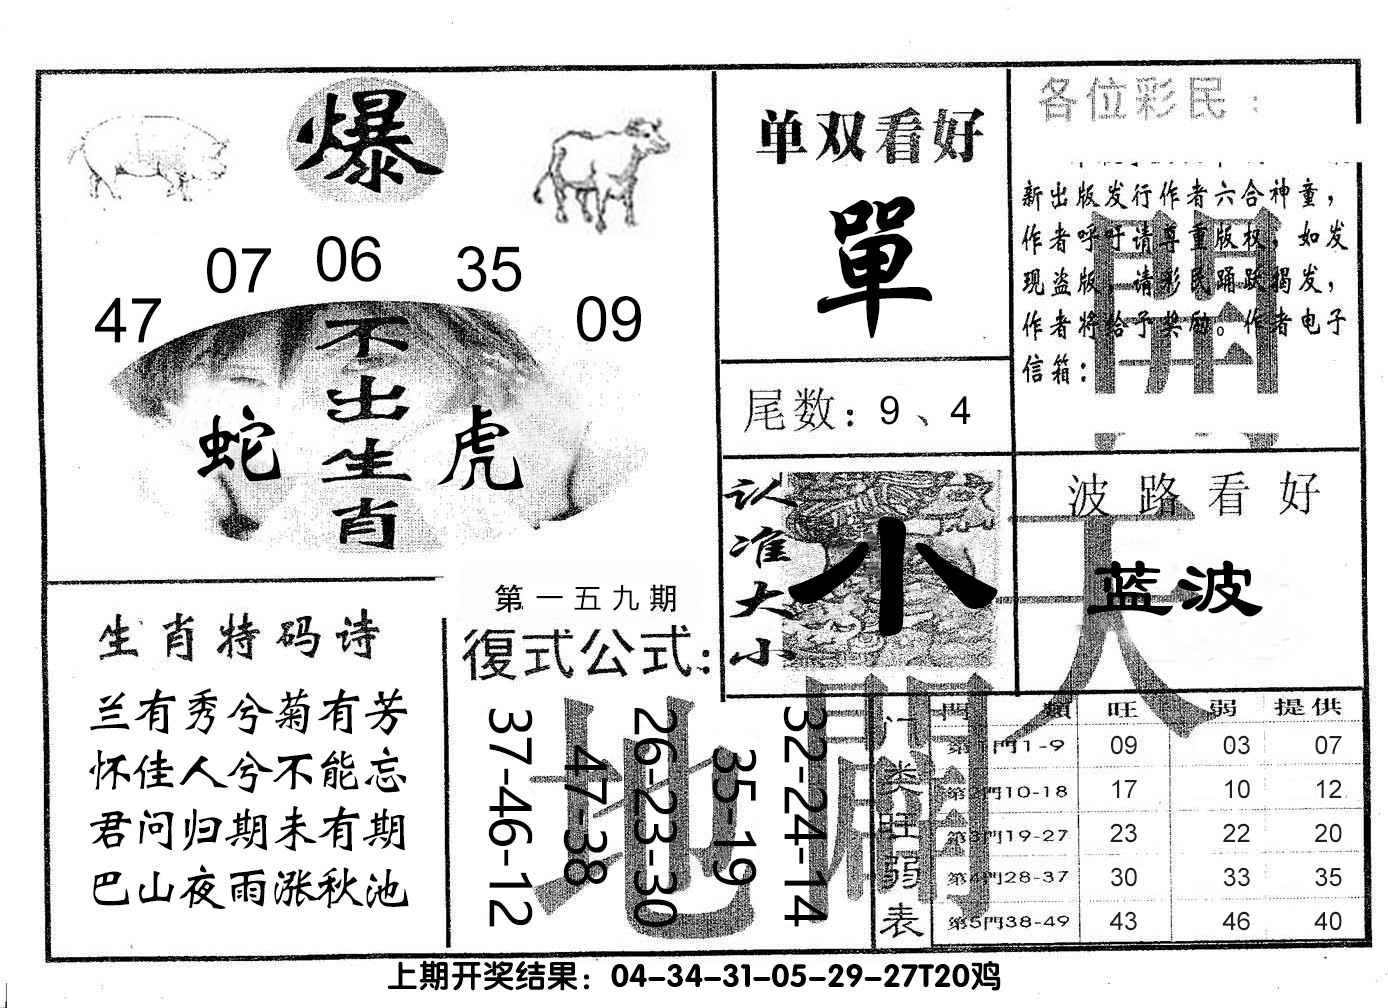 爆
47
07
06
35
09
不出生肖
蛇
虎
单双看好
單
尾数：9、4
认准大小
小
各位彩民：
新出版发行作者六合神童，
作者呼吁请尊重版权，如发
现盗版，请彩民踊跃揭发，
作者将给予奖励。作者电子
信箱：
開
波路看好
蓝波
天
生肖特码诗
兰有秀兮菊有芳
怀佳人兮不能忘
君问归期未有期
巴山夜雨涨秋池
第一五九期
復式公式：
37-46-12
47-38
26-23-30
35-19
32-24-14
地
開
门类旺弱表
門 類 旺 弱 提供
第1門1-9 09 03 07
第2門10-18 17 10 12
第3門19-27 23 22 20
第4門28-37 30 33 35
第5門38-49 43 46 40
上期开奖结果：04-34-31-05-29-27T20鸡